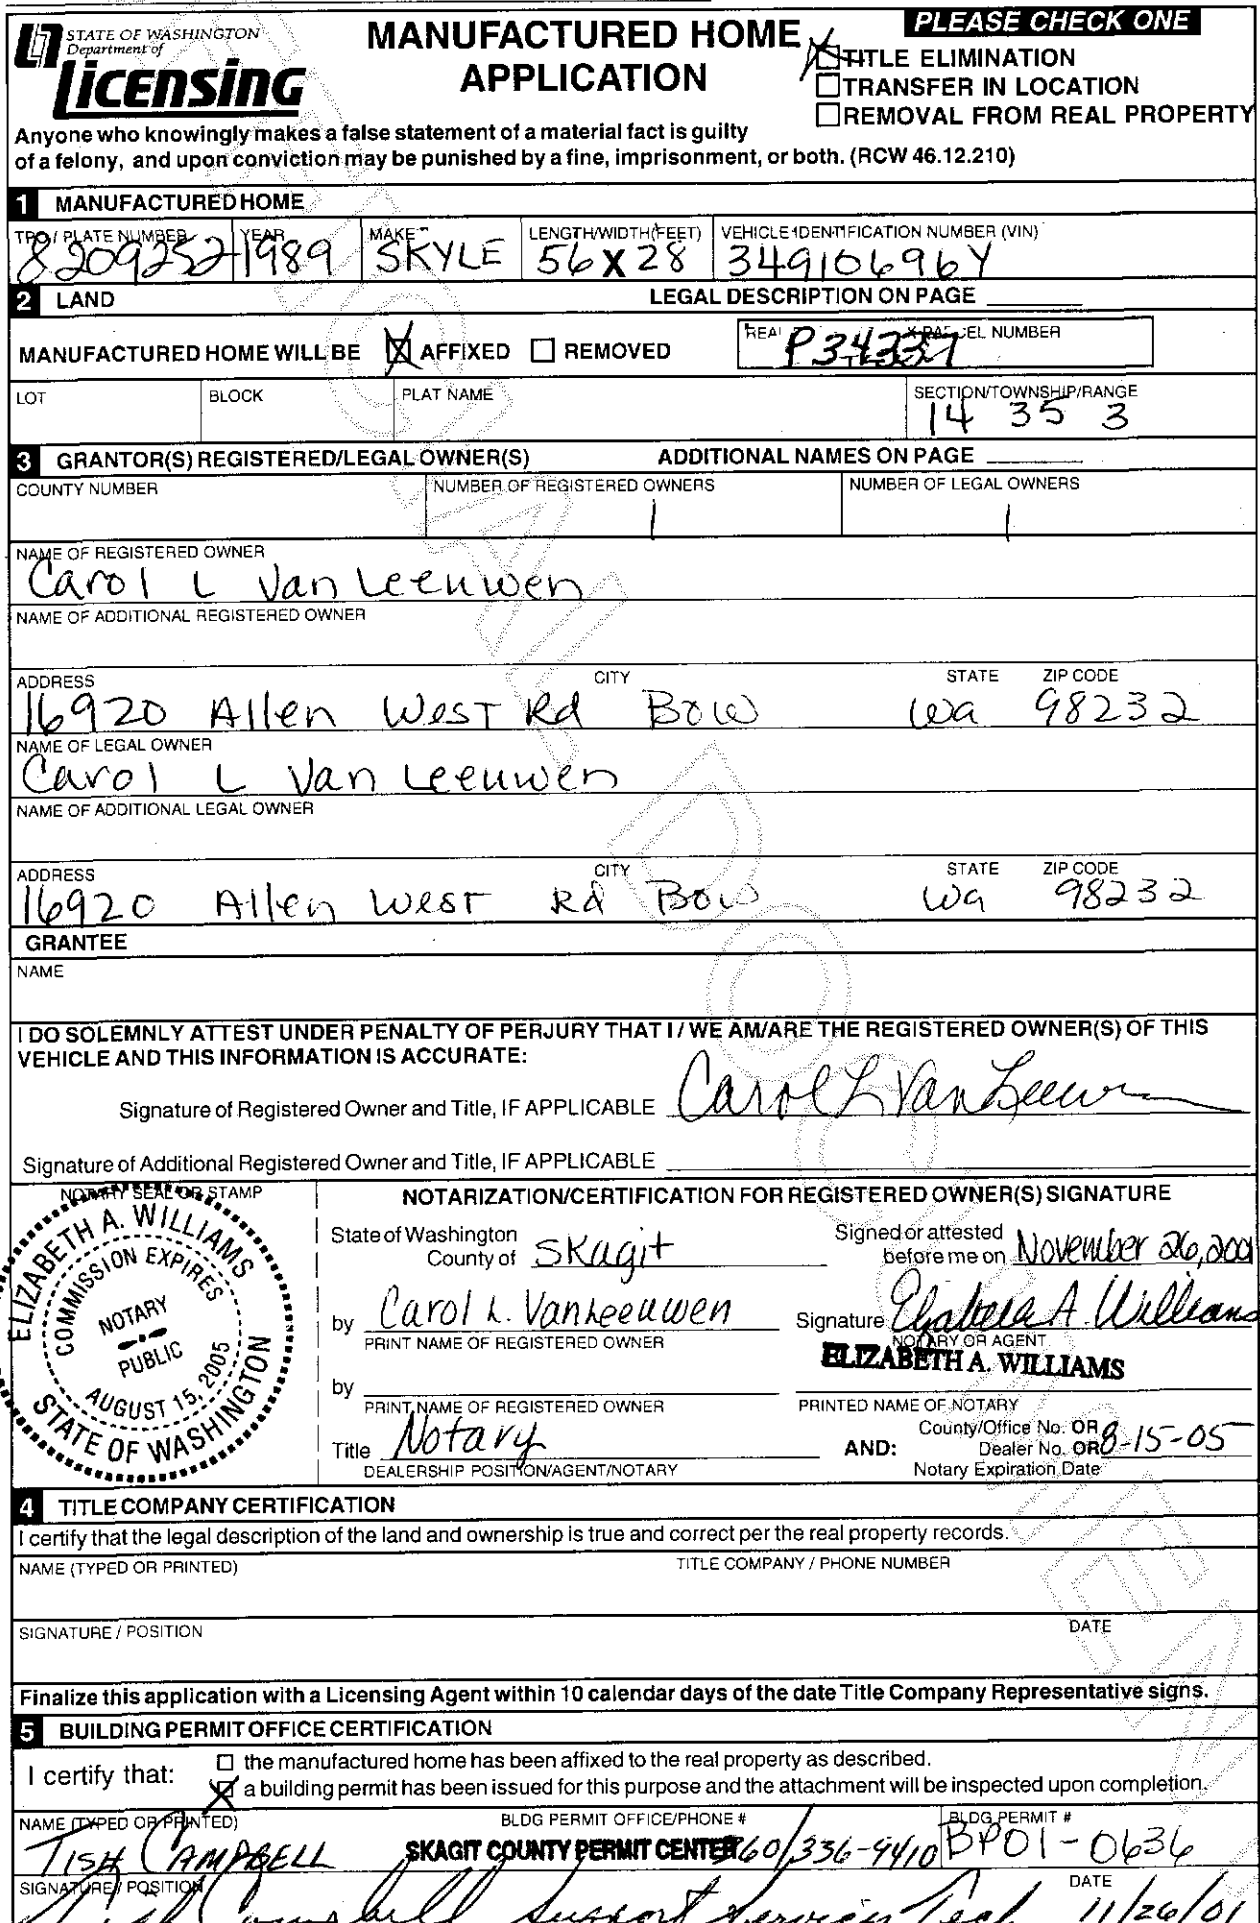 STATE OF WASHINGTON
Department of
Licensing
MANUFACTURED HOME
APPLICATION
PLEASE CHECK ONE
TITLE ELIMINATION
TRANSFER IN LOCATION
REMOVAL FROM REAL PROPERTY
Anyone who knowingly makes a false statement of a material fact is guilty
of a felony, and upon conviction may be punished by a fine, imprisonment, or both. (RCW 46.12.210)
1 MANUFACTURED HOME
TPO / PLATE NUMBER YEAR MAKE LENGTH/WIDTH (FEET) VEHICLE IDENTIFICATION NUMBER (VIN)
8209252 1989 SKYLE 56 X 28 34910696Y
2 LAND LEGAL DESCRIPTION ON PAGE
MANUFACTURED HOME WILL BE X AFFIXED REMOVED
PARCEL NUMBER
P34337
LOT BLOCK PLAT NAME SECTION/TOWNSHIP/RANGE
14 35 3
3 GRANTOR(S) REGISTERED/LEGAL OWNER(S) ADDITIONAL NAMES ON PAGE
COUNTY NUMBER NUMBER OF REGISTERED OWNERS NUMBER OF LEGAL OWNERS
1 1
NAME OF REGISTERED OWNER
Carol L Van Leeuwen
NAME OF ADDITIONAL REGISTERED OWNER
ADDRESS CITY STATE ZIP CODE
16920 Allen West Rd Bow Wa 98232
NAME OF LEGAL OWNER
Carol L Van Leeuwen
NAME OF ADDITIONAL LEGAL OWNER
ADDRESS CITY STATE ZIP CODE
16920 Allen West Rd Bow Wa 98232
GRANTEE
NAME
I DO SOLEMNLY ATTEST UNDER PENALTY OF PERJURY THAT I / WE AM/ARE THE REGISTERED OWNER(S) OF THIS
VEHICLE AND THIS INFORMATION IS ACCURATE:
Signature of Registered Owner and Title, IF APPLICABLE Carol L Van Leeuwen
Signature of Additional Registered Owner and Title, IF APPLICABLE
NOTARY SEAL OR STAMP
ELIZABETH A. WILLIAMS
COMMISSION EXPIRES
NOTARY
PUBLIC
AUGUST 15, 2005
STATE OF WASHINGTON
NOTARIZATION/CERTIFICATION FOR REGISTERED OWNER(S) SIGNATURE
State of Washington Signed or attested
County of Skagit before me on November 26, 2001
by Carol L. VanLeeuwen Signature Elizabeth A. Williams
PRINT NAME OF REGISTERED OWNER NOTARY OR AGENT
ELIZABETH A. WILLIAMS
by
PRINT NAME OF REGISTERED OWNER PRINTED NAME OF NOTARY
Title Notary AND: County/Office No. OR
Dealer No. OR 8-15-05
DEALERSHIP POSITION/AGENT/NOTARY Notary Expiration Date
4 TITLE COMPANY CERTIFICATION
I certify that the legal description of the land and ownership is true and correct per the real property records.
NAME (TYPED OR PRINTED) TITLE COMPANY / PHONE NUMBER
SIGNATURE / POSITION DATE
Finalize this application with a Licensing Agent within 10 calendar days of the date Title Company Representative signs.
5 BUILDING PERMIT OFFICE CERTIFICATION
I certify that:
the manufactured home has been affixed to the real property as described.
X a building permit has been issued for this purpose and the attachment will be inspected upon completion.
NAME (TYPED OR PRINTED) BLDG PERMIT OFFICE/PHONE # BLDG PERMIT #
TISH CAMPBELL SKAGIT COUNTY PERMIT CENTER 360/336-9410 BP01-0636
SIGNATURE / POSITION DATE
Tish Campbell Support Services Tech 11/26/01
UNOFFICIAL DOCUMENT